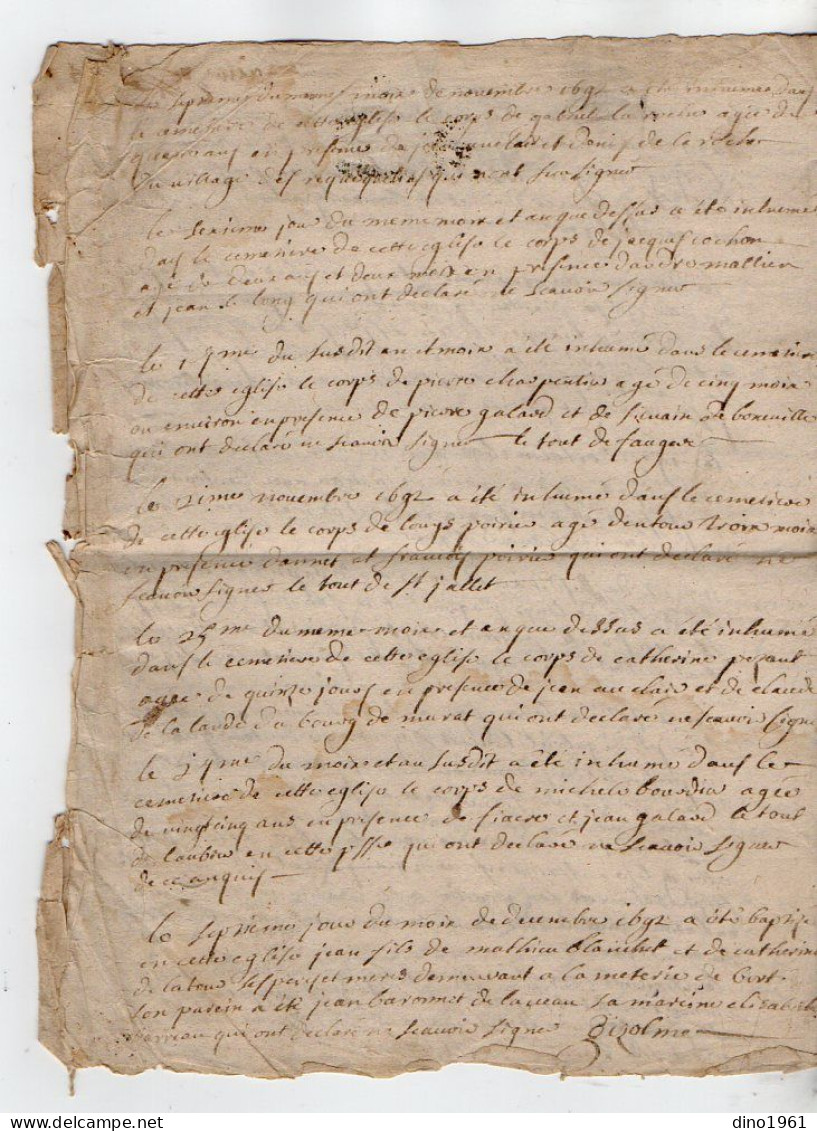 du mesme mois de novembre 1692 a été inhumée dans
le cemetiere de cette eglise le corps de la roche agée de
ans en presence de jean auclair et denis de la roche
du village des qui n'ont sceu signer
le sesieme jour du meme mois et an que dessus a été inhumé
dans le cemetiere de cette eglise le corps de jacques cochon
agé de deux ans et deux mois en presence d'andre mallien
et jean le long qui ont declaré ne scavoir signer
le 19me du susdit an et mois a été inhumé dans le cemetiere
de cette eglise le corps de pierre charpentier agé de cinq mois
ou environ en presence de pierre galand et de silvain de boneuille
qui ont declaré ne scavoir signer le tout de faugere
le novembre 1692 a été inhumé dans le cemetiere
de cette eglise le corps de louys poirier agé denviron trois mois
en presence dannet et francois poirier qui ont declaré ne
scavoir signer le tout de st jallet
le 25me du meme mois et an que dessus a été inhumé
dans le cemetiere de cette eglise le corps de catherine pezant
agée de quinze jours en presence de jean auclair et de claude
de la lande du bourg de murat qui ont declaré ne scavoir signer
le du mois et an susdit a été inhumé dans le
cemetiere de cette eglise le corps de michele bourdin agée
de vingt cinq ans en presence de fiacre et jean galand le tout
de en cette psse qui ont declaré ne scavoir signer
de ce enquis
le septieme jour du mois de decembre 1692 a été baptizé
en cette eglise jean fils de mathieu blanchet et de catherine
de latour ses pere et mere demeurant a la meterie de
son parein a été jean baronnet de la mareine elisabeth
qui ont declaré ne scavoir signer
dino1961